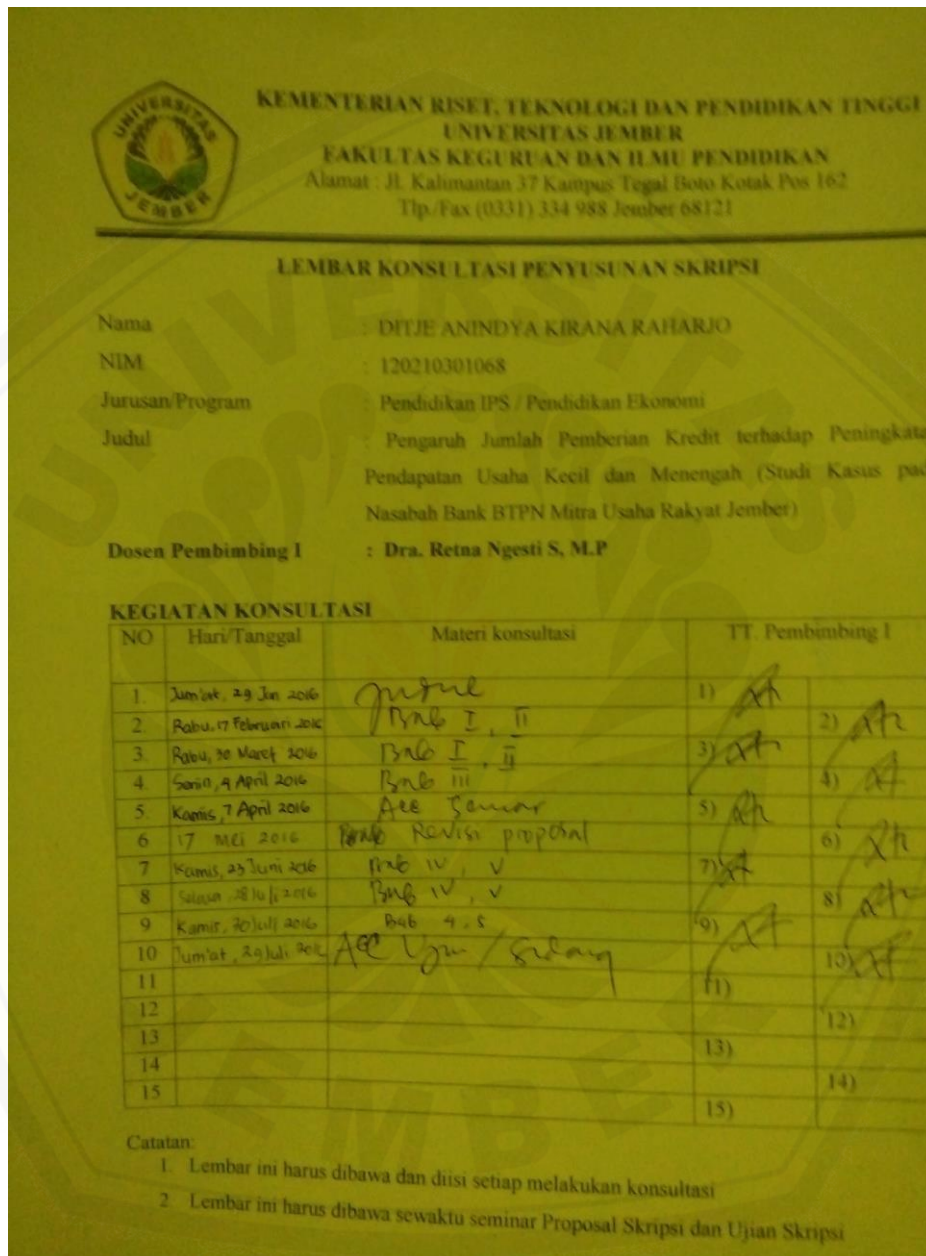 UNIVERSITAS
JEMBER
KEMENTERIAN RISET, TEKNOLOGI DAN PENDIDIKAN TINGGI
UNIVERSITAS JEMBER
FAKULTAS KEGURUAN DAN ILMU PENDIDIKAN
Alamat : Jl. Kalimantan 37 Kampus Tegal Boto Kotak Pos 162
Tlp./Fax (0331) 334 988 Jember 68121
LEMBAR KONSULTASI PENYUSUNAN SKRIPSI
Nama : DITJE ANINDYA KIRANA RAHARJO
NIM : 120210301068
Jurusan/Program : Pendidikan IPS / Pendidikan Ekonomi
Judul : Pengaruh Jumlah Pemberian Kredit terhadap Peningkata
Pendapatan Usaha Kecil dan Menengah (Studi Kasus pad
Nasabah Bank BTPN Mitra Usaha Rakyat Jember)
Dosen Pembimbing I : Dra. Retna Ngesti S, M.P
KEGIATAN KONSULTASI
NO Hari/Tanggal Materi konsultasi TT. Pembimbing I
1. Jum'at, 29 Jan 2016 Judul 1)
2. Rabu, 17 Februari 2016 Bab I, II 2)
3. Rabu, 30 Maret 2016 Bab I, II 3)
4. Senin, 4 April 2016 Bab III 4)
5. Kamis, 7 April 2016 Acc Seminar 5)
6 17 Mei 2016 Revisi proposal 6)
7 Kamis, 23 Juni 2016 Bab IV, V 7)
8 Selasa 2016 Bab IV, V 8)
9 Kamis, Juli 2016 Bab 4, 5 9)
10 Jum'at, 29 Juli 2016 ACC Ujian / Sidang 10)
11 11)
12 12)
13 13)
14 14)
15 15)
Catatan:
1. Lembar ini harus dibawa dan diisi setiap melakukan konsultasi
2 Lembar ini harus dibawa sewaktu seminar Proposal Skripsi dan Ujian Skripsi